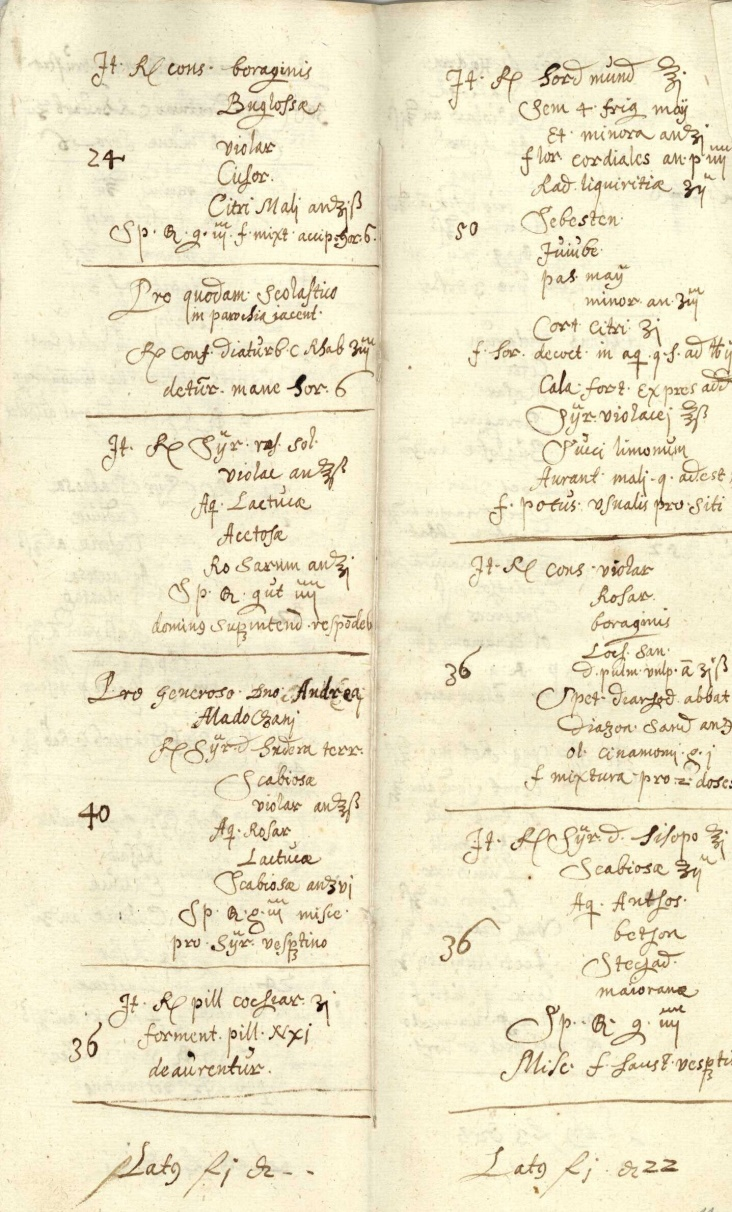 Jt. ℞ cons. boraginis
Buglossæ
violar
24 Cicſor.
Citri Malj an ʒjß
Sp. ℞. g. iii. f. mixt. accip. hor. 6.
Pro quodam Scolastico
in parochia jacent.
℞ Conf. diaturb c Rhab ʒiii
detur. mane hor. 6
Jt. ℞ Sÿr. ros. sol.
violac an ℥ß
Aq. Lactucæ
Acetosæ
Rosarum an ℥j
Sp. ℞. gut iiii
dominꝰ Supintend. respōdeb
Pro generoso Dno Andreæ
Aladoczanj
℞ Sÿr. d. hedera terr.
Scabiosæ
violar an ℥ß
40 Aq. Rosar
Lactucæ
Scabiosæ an ʒvj
Sp. ℞. g. iii misce.
pro Sÿr. vesptino
Jt. ℞ pill cochear. ʒj
36 forment. pill. xxj
deaurentur.
Latꝰ fj

Jt. ℞ hord mund ℥j
Sem 4 frig maÿ
et minora an ʒj
flor cordiales an. p. iiii
Rad. liquiritiæ ʒii
50 Sebesten
Jujube.
pas. maÿ
minor. an. ʒiii
Cort Citri ʒj
f. hor. decoct. in aq. q. s. ad
Cala. fort. expres add
Sÿr. violacej ℥ß
Succi limonum
Aurant. malj. q. ad est
f. potus vsualis pro siti
Jt. ℞ cons. violar
Rosar.
boraginis
Loch. San.
36 d. pulm. vulp. ā ʒjß
Spec. diarrod. abbat
Diazon. Sand an
ol. cinamomj. g. j
f. mixtura pro 2 doses
Jt. ℞ Sÿr. d. hisopo ℥j
Scabiosæ ʒii
Aq. Anthos.
36 beton
Stechad.
maioranæ
Sp. ℞. g. iiii
Misc. f. haust. vesp
Latꝰ fj 22